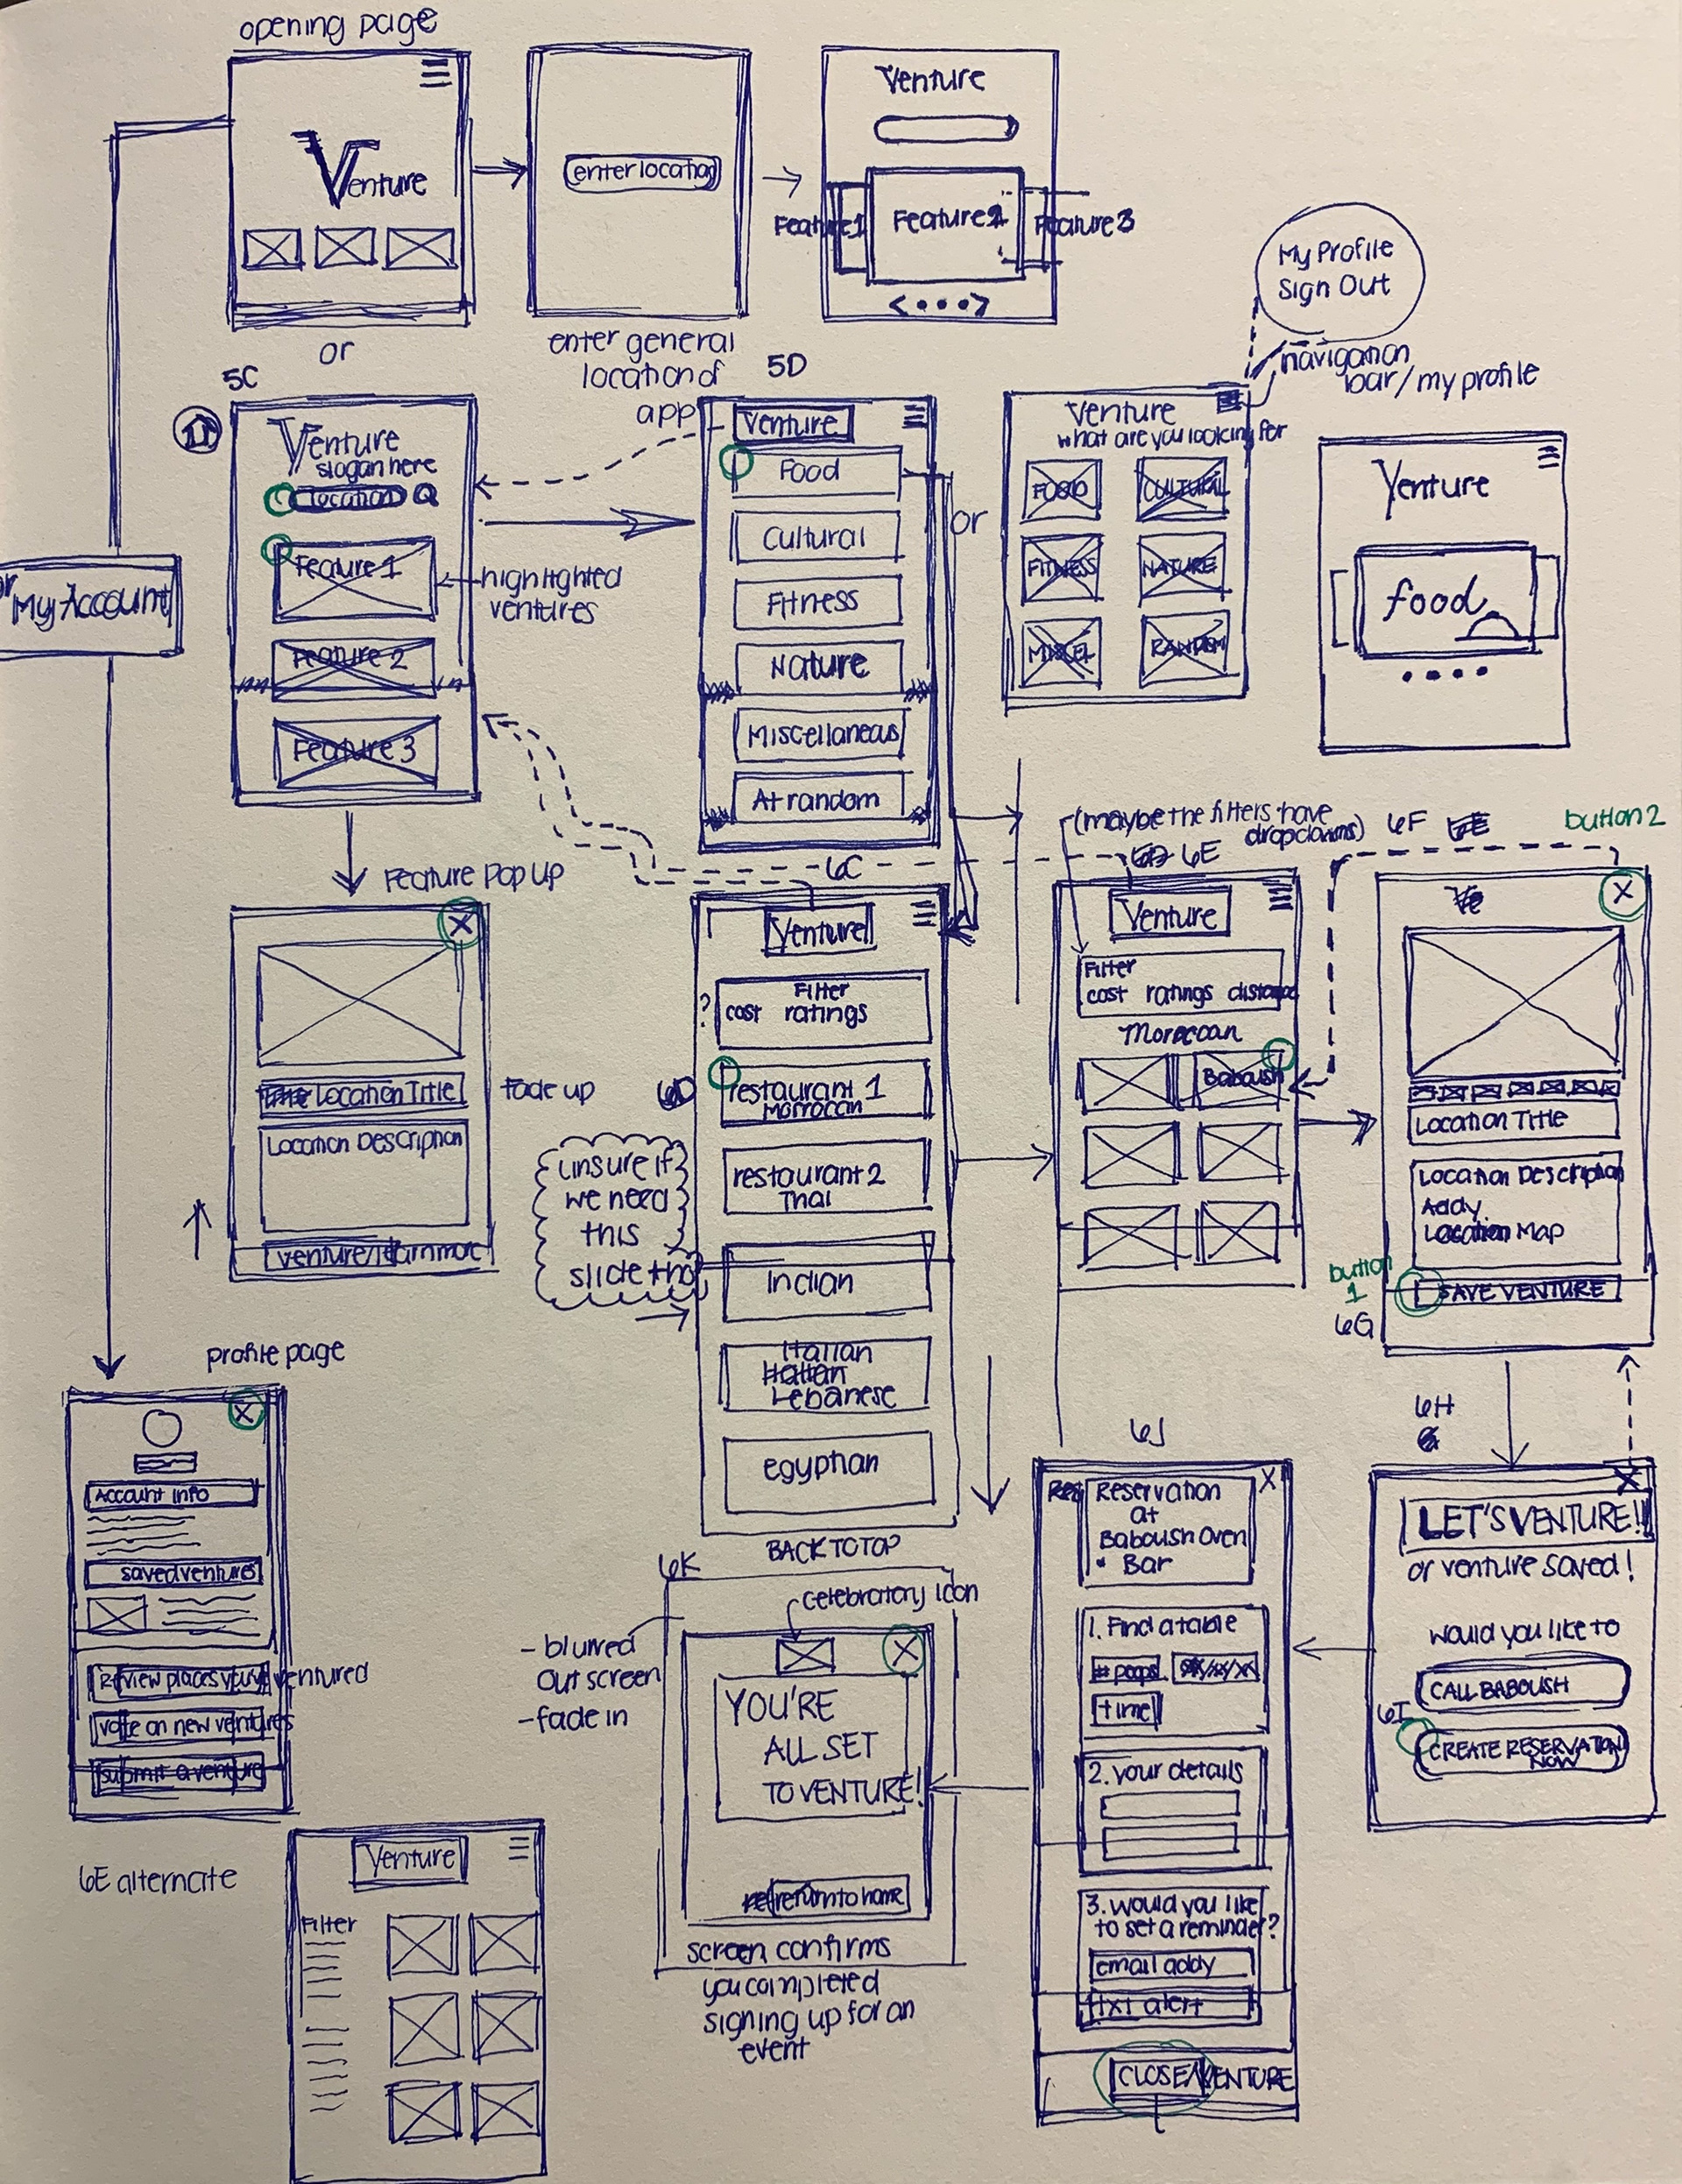 opening page
Venture
enter location
Venture
Feature 1
Feature 2
Feature 3
My Profile
Sign Out
or
enter general
location of
app
navigation
bar/my profile
5C
Venture
slogan here
location
Feature 1
highlighted
ventures
Feature 2
Feature 3
5D
Venture
Food
Cultural
Fitness
Nature
Miscellaneous
At random
or
Venture
what are you looking for
FOOD
CULTURAL
FITNESS
NATURE
MISCEL
RANDOM
Venture
food
or
My Account
Feature Pop Up
X
Location Title
Location Description
venture/learn more
fade up
6C
Venture
?
Filter
cost ratings
6D
restaurant 1
Morrocan
restaurant 2
Thai
Indian
Italian
Italian
Lebanese
egyptian
BACK TO TOP
unsure if
we need
this
slide tho
(maybe the filters have
dropdowns)
6D 6E
Venture
Filter
cost ratings distance
Moroccan
Baboush
6F
button 2
Ve
X
Location Title
Location Description
Addy.
Location Map
button
1
SAVE VENTURE
6G
profile page
X
Account Info
saved ventures
Review places you've ventured
vote on new ventures
submit a venture
6H
X
LET'S VENTURE!!
or venture saved!
would you like to
CALL BABOUSH
6I
CREATE RESERVATION
NOW
6J
X
Res
Reservation
at
Baboush Oven
• Bar
1. Find a table
# peops
xx/xx/xx
time
2. your details
3. would you like
to set a reminder?
email addy
txt alert
CLOSE/VENTURE
6K
celebratory icon
- blurred
out screen
- fade in
X
YOU'RE
ALL SET
TO VENTURE!
return to home
screen confirms
you completed
signing up for an
event
6E alternate
Venture
Filter